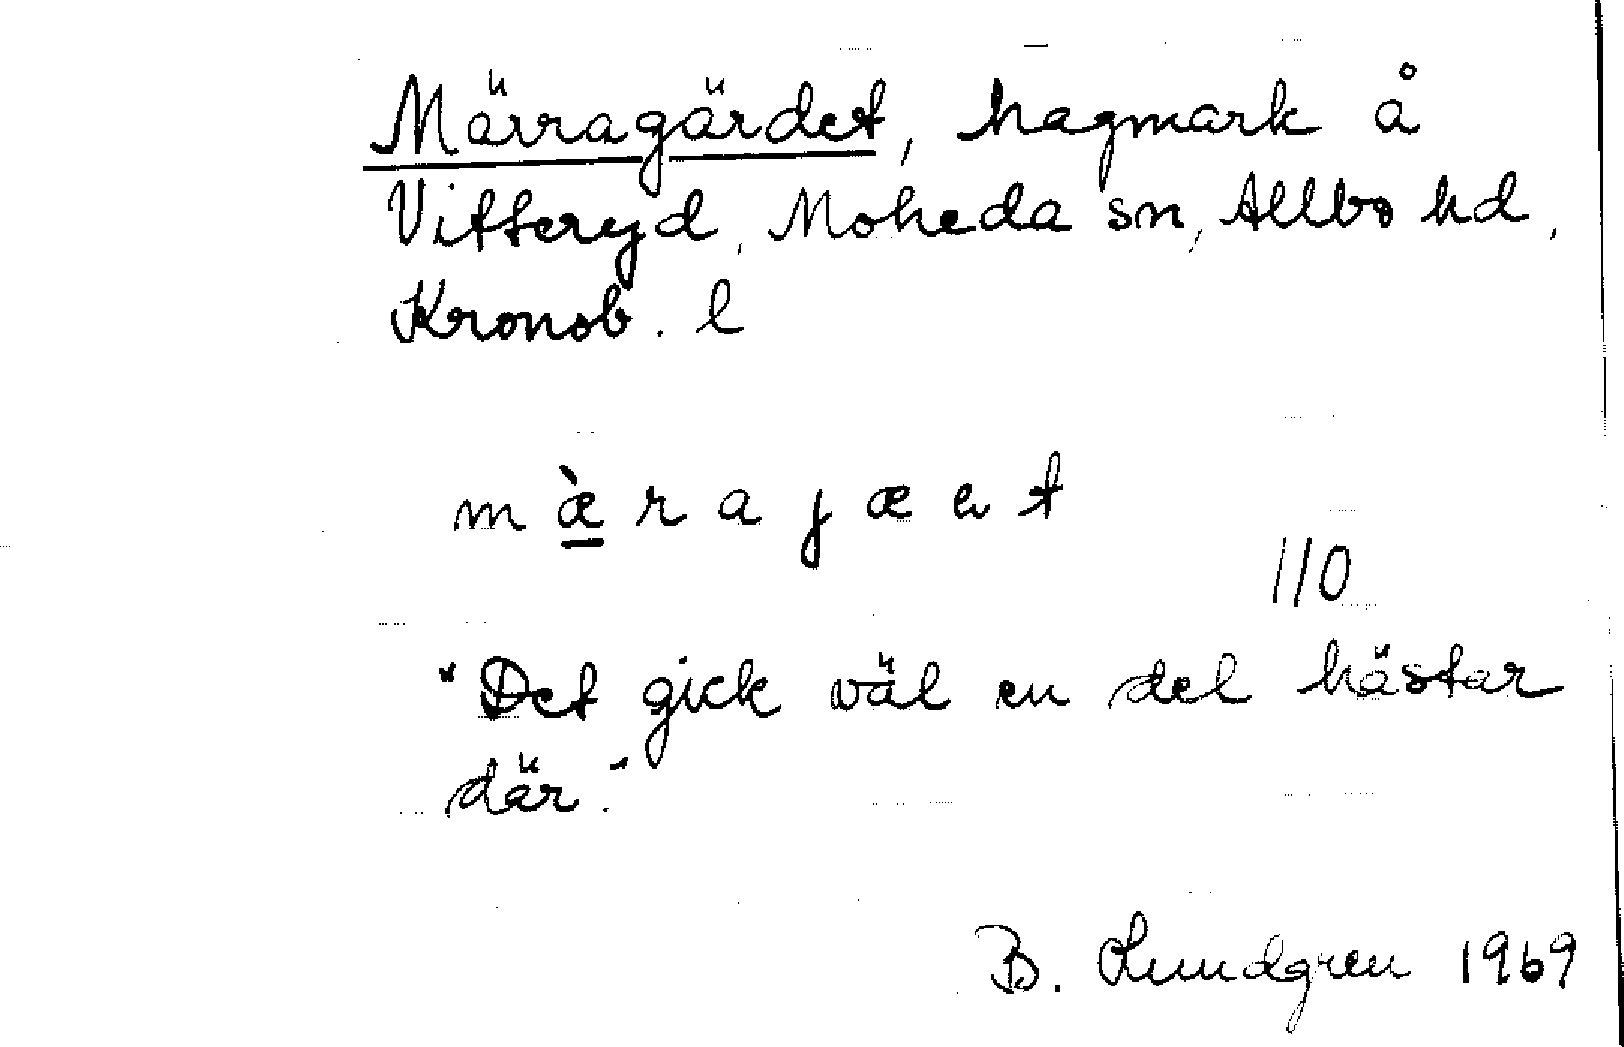 Märragärdet, hagmark å
Vitteryd, Moheda sn, Allbo hd,
Kronob. l
m æ̀ r a j æ t
110
"Det gick väl en del hästar
där."
B. Lundgren 1969